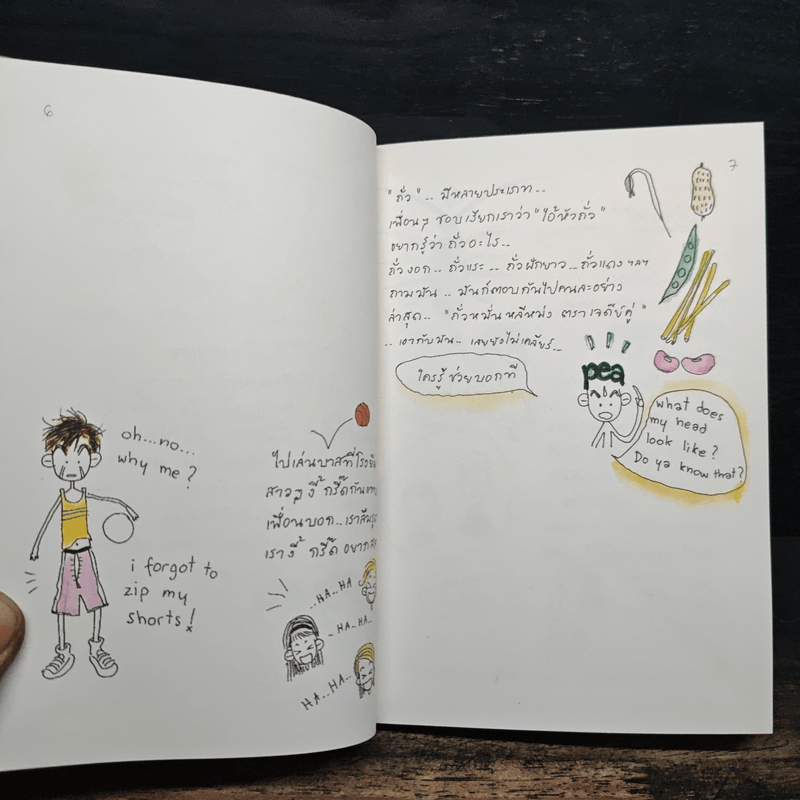 6
oh...no...
why me?
i forgot to
zip my
shorts!
ไปเล่นบาสที่โรงยิม
สาวๆ งี้ กรี๊ดกัน
เพื่อนบอก.. เราลืม
เรางี้ กรี๊ด อยาก
..HA..HA
~ HA..HA..
HA..HA..
7
"ถั่ว" .. มีหลายประเภท..
เพื่อนๆ ชอบเรียกเราว่า "ไอ้หัวถั่ว"
อยากรู้ว่า ถั่วอะไร..
ถั่วงอก.. ถั่วแระ.. ถั่วฝักยาว.. ถั่วแดง ฯลฯ
ถามมัน .. มันก็ตอบกันไปคนละอย่าง
ล่าสุด.. "ถั่วหมั่นหลีหม่ง ตราเจดีย์คู่"
.. เอากับมัน.. เลยยังไม่เคลียร์...
ใครรู้ ช่วยบอกที
pea
what does
my head
look like?
Do ya know that?